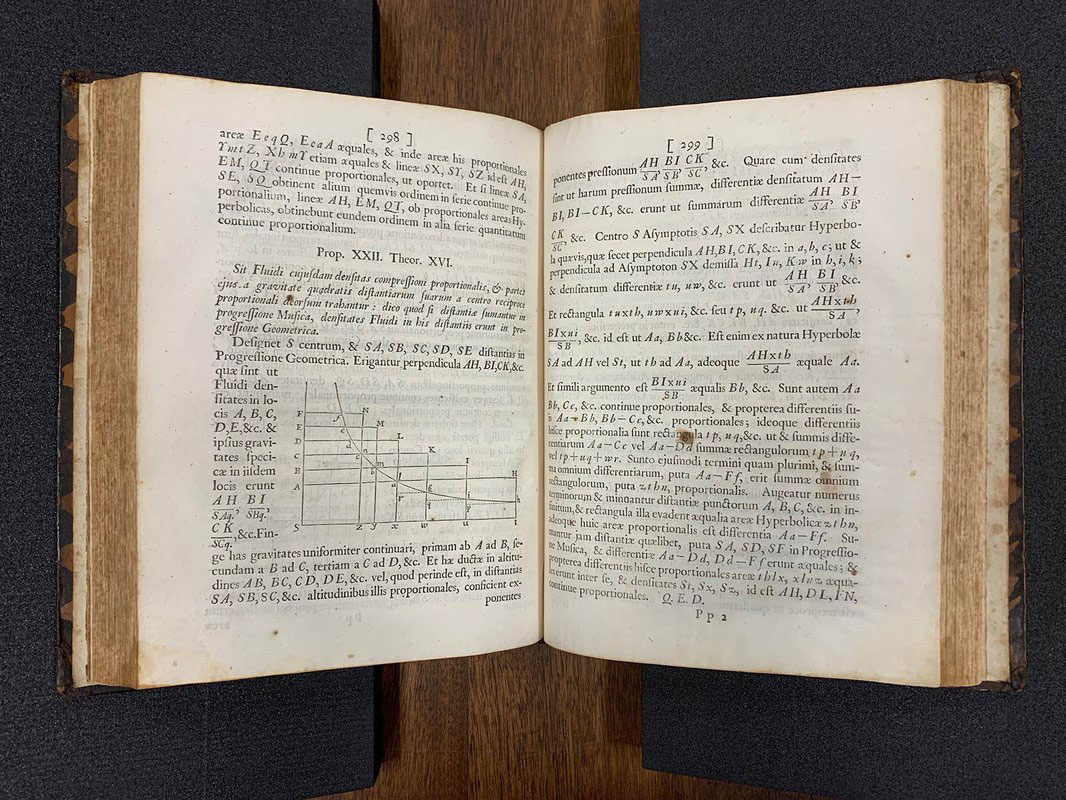 [ 298 ]
areæ EeqQ, EeaA æquales, & inde areæ his proportionales
YmtZ, XhmY etiam æquales & lineæ SX, SY, SZ id est AH,
EM, QT continue proportionales, ut oportet. Et si lineæ SA,
SE, SQ obtinent alium quemvis ordinem in serie continue pro-
portionalium, lineæ AH, EM, QT, ob proportionales areas Hy-
perbolicas, obtinebunt eundem ordinem in alia serie quantitatum
continue proportionalium.
Prop. XXII. Theor. XVI.
Sit Fluidi cujusdam densitas compressioni proportionalis, & partes
ejus a gravitate quadratis distantiarum suarum a centro reciproce
proportionali deorsum trahantur: dico quod si distantiæ sumantur in
progressione Musica, densitates Fluidi in his distantiis erunt in pro-
gressione Geometrica.
Designet S centrum, & SA, SB, SC, SD, SE distantias in
Progressione Geometrica. Erigantur perpendicula AH, BI, CK, &c.
quæ sint ut
Fluidi den-
sitates in lo-
cis A, B, C,
D, E, &c. &
ipsius gravi-
tates speci-
cæ in iisdem
locis erunt
AH BI
SAq.' SBq.'
CK
SCq.' &c. Fin-
F N
E M
D L
C K
B I
A H
S z y x w u t
ge has gravitates uniformiter continuari, primam ab A ad B, se-
cundam a B ad C, tertiam a C ad D, &c. Et hæ ductæ in altitu-
dines AB, BC, CD, DE, &c. vel, quod perinde est, in distantias
SA, SB, SC, &c. altitudinibus illis proportionales, conficient ex-
ponentes
[ 299 ]
ponentes pressionum AH/SA, BI/SB, CK/SC, &c. Quare cum densitates
sint ut harum pressionum summæ, differentiæ densitatum AH—
BI, BI—CK, &c. erunt ut summarum differentiæ AH/SA, BI/SB,
CK/SC, &c. Centro S Asymptotis SA, SX describatur Hyperbo-
la quævis, quæ secet perpendicula AH, BI, CK, &c. in a, b, c; ut &
perpendicula ad Asymptoton SX demissa Ht, Iu, Kw in h, i, k;
& densitatum differentiæ tu, uw, &c. erunt ut AH/SA, BI/SB &c.
Et rectangula tu x th, uw x ui, &c. seu tp, uq, &c. ut AH x th/SA,
BI x ui/SB, &c. id est ut Aa, Bb &c. Est enim ex natura Hyperbolæ
SA ad AH vel St, ut th ad Aa, adeoque AH x th/SA æquale Aa.
Et simili argumento est BI x ui/SB æqualis Bb, &c. Sunt autem Aa
Bb, Cc, &c. continue proportionales, & propterea differentiis su-
is Aa—Bb, Bb—Cc, &c. proportionales; ideoque differentiis
hisce proportionalia sunt rectangula tp, uq, &c. ut & summis diffe-
rentiarum Aa—Cc vel Aa—Dd summæ rectangulorum tp+uq,
vel tp+uq+wr. Sunto ejusmodi termini quam plurimi, & sum-
ma omnium differentiarum, puta Aa—Ff, erit summæ omnium
rectangulorum, puta zthn, proportionalis. Augeatur numerus
terminorum & minuantur distantiæ punctorum A, B, C, &c. in in-
finitum, & rectangula illa evadent æqualia areæ Hyperbolicæ zthn,
adeoque huic areæ proportionalis est differentia Aa—Ff. Su-
mantur jam distantiæ quælibet, puta SA, SD, SF in Progressio-
ne Musica, & differentiæ Aa—Dd, Dd—Ff erunt æquales; &
propterea differentiis hisce proportionales areæ thlx, xlnz æqua-
les erunt inter se, & densitates St, Sx, Sz, id est AH, DL, FN,
continue proportionales. Q. E. D.
Pp 2